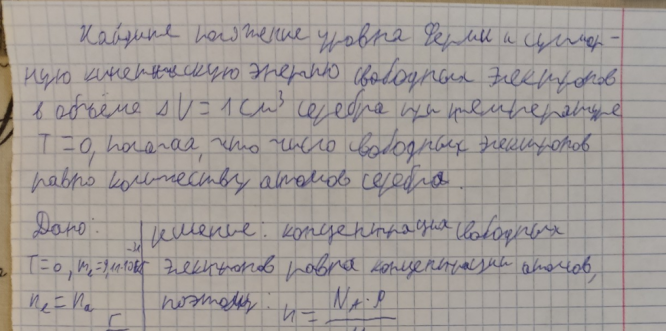 Найдите положение уровня Ферми и суммар-
ную кинетическую энергию свободных электронов
в объёме ΔV = 1 см³ серебра при температуре
T = 0, полагая, что число свободных электронов
равно количеству атомов серебра.
Дано: решение: концентрация свободных
T = 0, mₑ = 9,11·10⁻³¹ электронов равна концентрации атомов,
nₑ = nₐ поэтому: n = Nₐ·ρ